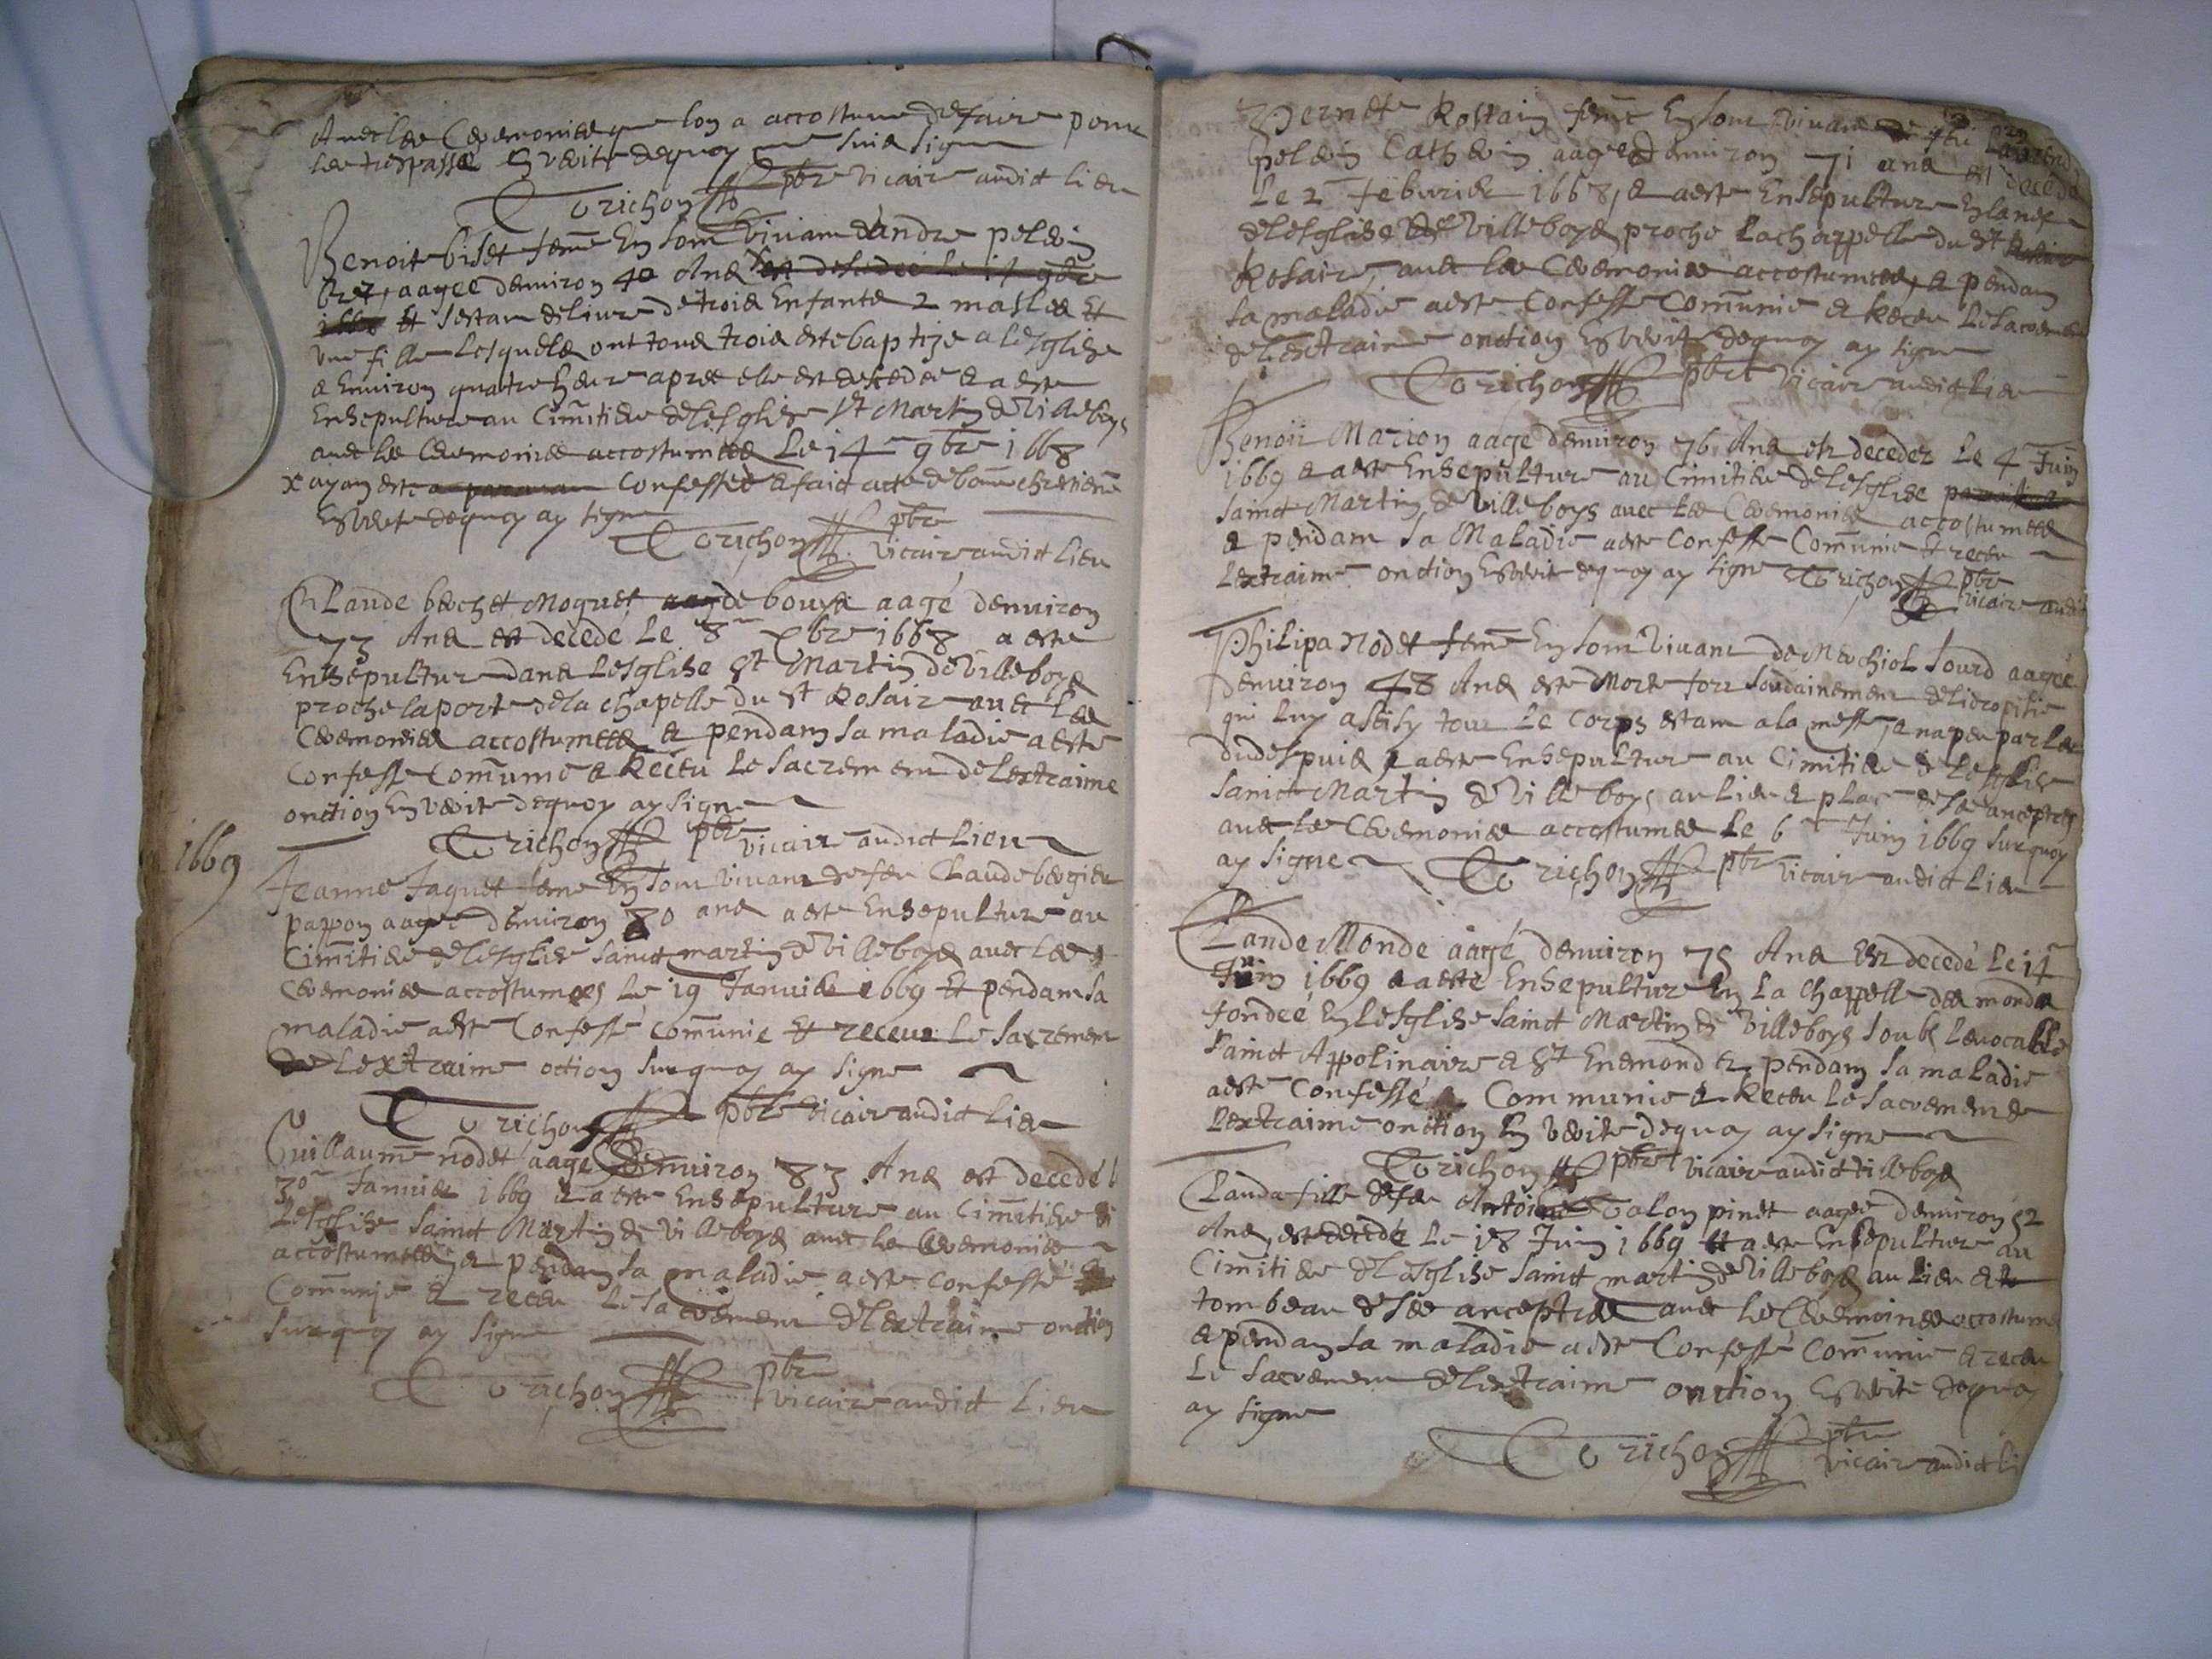 Avec les Ceremonies que lon a accostume de faire pour
les trespasse En verite dequoy me suis signe
Torichon pbre vicaire audict lieu
Benoite biset feme En son vivant d'andre pelein
aagee denviron 40 Ans est desedee le 14 9bre
1668 et sestant delivre de trois Enfants 2 masles Et
une fille lesquels ont tous trois este baptize a lesglise
& Environ quatre heure apres elle est desedee & a este
Ensepulture au Cimitiere de lesglise St Martin de Villeboys
avec les Ceremonies accostumees Le 14 9bre 1668
x ayant este Confesseé & faict acte de bonne chrestiene
En verite dequoy ay signe
Torichon pbre
vicaire audict lieu
Claude bechet Moguet de bouys aagé denviron
73 Ans est decedé Le 8me Xbre 1668 a este
Ensepulture dans Lesglise St Martin de Villeboys
proche la porte de la chapelle du St Rosaire avec les
Ceremonies accostumees & pendant sa maladie a este
Confesse Comunie & Receu le Sacrement de Lextraime
onction En verite dequoy ay signe
Torichon pbre vicaire audict Lieu
1669
Jeanne Jaquet feme En son vivant de feu Claude bergier
pappon aagee denviron 80 ans a este Ensepulture au
Cimitiere de lesglise Sainct martin de Villeboys avec les
Ceremonies accostumees Le 19 Janvier 1669 Et pendant sa
maladie a este Confessé comunie Et receu Le Sacrement
de Lextraime oction surquoy ay signe
Torichon pbre vicaire audict lieu
Guillaume nodet aage Denviron 83 Ans est decedé l
30me Janvier 1669 & a este Ensepulture au Cimitiere de
Lesglise Sainct Martin de Villeboys avec les Ceremonies
accostumees, & pendant sa maladie a este confessé &
Comunié & receu le sacrement de Lextraime onction
surquoy ay signe
Torichon pbre
vicaire audict Lieu
Pernete Rostain feme En son vivant de feu Laurend
pelein Catherin aagee denviron 71 ans est decede
Le 2me febvrier 1668, & a este Ensepulture En la nef
de lesglise de Villeboys proche la chappelle du St
Rosaire, avec les Ceremonies accostumees, & pendant
sa maladie a este Confesse Comunie & Receu le sacrement
de lextraime onction En verite dequoy ay signe
Torichon pbre vicaire audict lieu
Benoit Marion aage denviron 76 Ans est decedez Le 4 Juin
1669 & a este Ensepulture au Cimitiere de Lesglise
Sainct Martin de Villeboys avec Les Ceremonies accostumees
& pendant sa Maladie a este Confesse Comunié & receu
Lextraime onction En verite dequoy ay signe Torichon pbre
vicaire audit
Philipa Nodet feme En son vivant de Merchiol Sourd aageé
denviron 48 Ans este Morte fort soudainement de lidropisie
qui luy a seisy tout Le Corps estant a la messe, & na peu parler
du despuis, & a este Ensepulture au Cimitiere de lesglise
Sainct Martin de Villeboys au lieu & place de ses anceptres
avec les Ceremonies accostumees Le 6me Juin 1669 surquoy
ay signe Torichon pbre vicaire audict Lieu
Claude Monde aagé denviron 75 Ans Est decedé le 14
Juin 1669 & a este Ensepulture En La Chappelle des monde
fondeé En Lesglise Sainct Martin de Villeboys soubs levocable
Sainct Appolinaire & St Enemond & pendant sa maladie
a este Confessé & Communie & Receu le Sacrement de
Lextraime onction En verite dequoy ay signe
Torichon pbre vicaire audict Villeboys
Clauda fille de feu Antoine Talon pinet aagee denviron 52
Ans, est decede Le 18 Juin 1669 & a este Ensepulture au
Cimitiere de Lesglise Sainct martin de Villeboys au lieu &
tombeau de ses anceptres avec les Ceremoines accostume
& pendant sa maladie a este Confessé Comunie & receu
Le Sacrement de lextraime onction En verite dequoy
ay signe
Torichon pbre
vicaire audict li